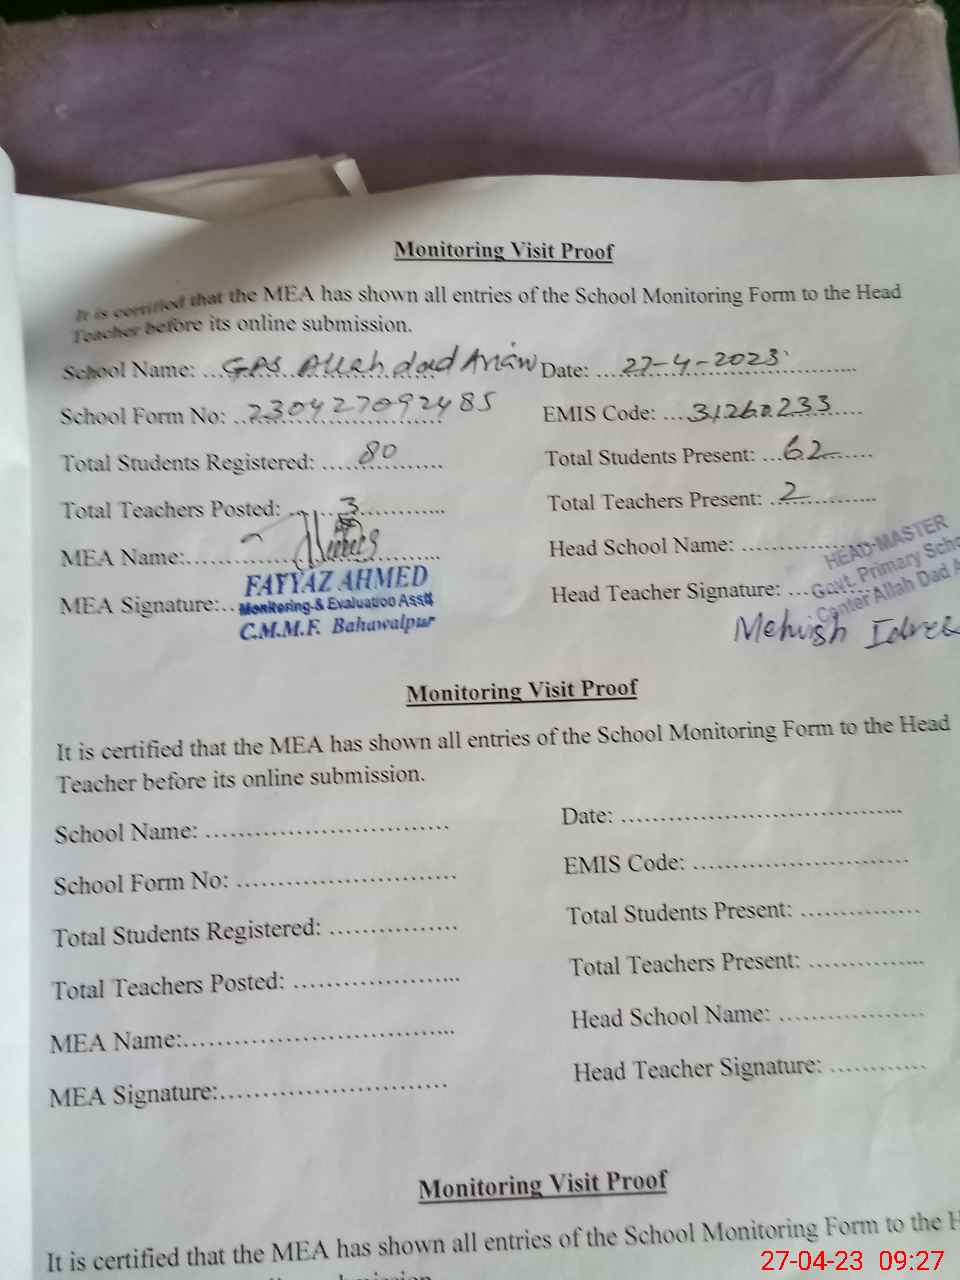 Monitoring Visit Proof
It is certified that the MEA has shown all entries of the School Monitoring Form to the Head
Teacher before its online submission.
School Name: ...GPS Allah dad Date: ...27-4-2023
School Form No: ..230427092485 EMIS Code: ....31260233......
Total Students Registered: ......80........ Total Students Present: ...62........
Total Teachers Posted: ........3............... Total Teachers Present: ..2............
MEA Name:................................... Head School Name: ..................
FAYYAZ AHMED
Monitoring & Evaluation Asstt
C.M.M.F. Bahawalpur
MEA Signature:.. Head Teacher Signature: ...
HEAD-MASTER
Govt. Primary Scho
Canter Allah Dad A
Mehwish
Monitoring Visit Proof
It is certified that the MEA has shown all entries of the School Monitoring Form to the Head
Teacher before its online submission.
School Name: ................................ Date: ....................................
School Form No: ............................. EMIS Code: ............................
Total Students Registered: ................. Total Students Present: ...............
Total Teachers Posted: ...................... Total Teachers Present: ...............
MEA Name:................................... Head School Name: ...................
MEA Signature:.............................. Head Teacher Signature: ............
Monitoring Visit Proof
It is certified that the MEA has shown all entries of the School Monitoring Form to the H
27-04-23 09:27